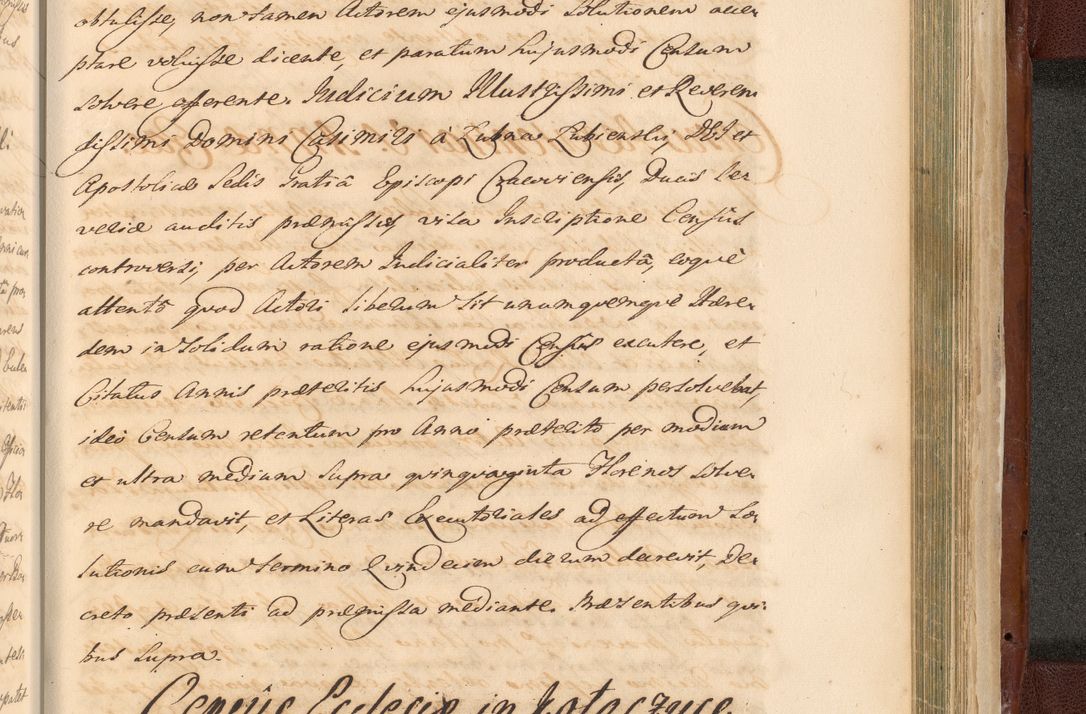 obtulisse, non tamen Actorem ejusmodi Solutionem acce-
ptare voluisse dicente, et paratum hujusmodi Censum
solvere offerente. Judicium Illustrissimi et Reveren-
dissimi Domini Casimiri à Łubna Łubienski, DEI et
Apostolicae Sedis Gratiâ Episcopi Cracoviensis, Ducis Se-
veriae auditis praemissis, visa Inscriptione Censûs
controversi, per Actorem Judicialiter productâ, eoquè
attentô quod Actori liberum Sit unumquemque Haere-
dem in Solidum ratione ejusmodi Censûs excutere, et
Citatus Annis praeteritis hujusmodi Censum persolvebat,
ideò Censum retentum pro Anno praeterito per medium
et ultra medium supra quinquaginta Florenos solve-
re mandavit, et Literas Executoriales ad effectum So-
lutionis cum termino Quindecim dierum decrevit, De-
creto praesenti ad praemissa mediante. Praesentibus qui-
bus supra.
Census Ecclesiae in